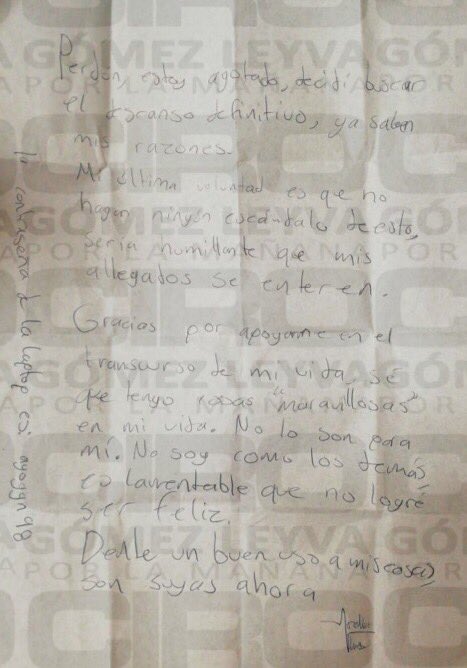 Perdón, estoy agotado, decidí buscar
el descanso definitivo, ya saben
mis razones.
Mi última voluntad es que no
hagan ningún escándalo de esto,
sería humillante que mis
allegados se enteren.
Gracias por apoyarme en el
transcurso de mi vida, sé
que tengo cosas "maravillosas"
en mi vida. No lo son para
mí. No soy como los demás,
es lamentable que no logré
ser feliz.
Denle un buen uso a mis cosas,
son suyas ahora
la contraseña d la laptop es: ayoyyn98
CIRO
GÓMEZ LEYVA
POR LA MAÑANA